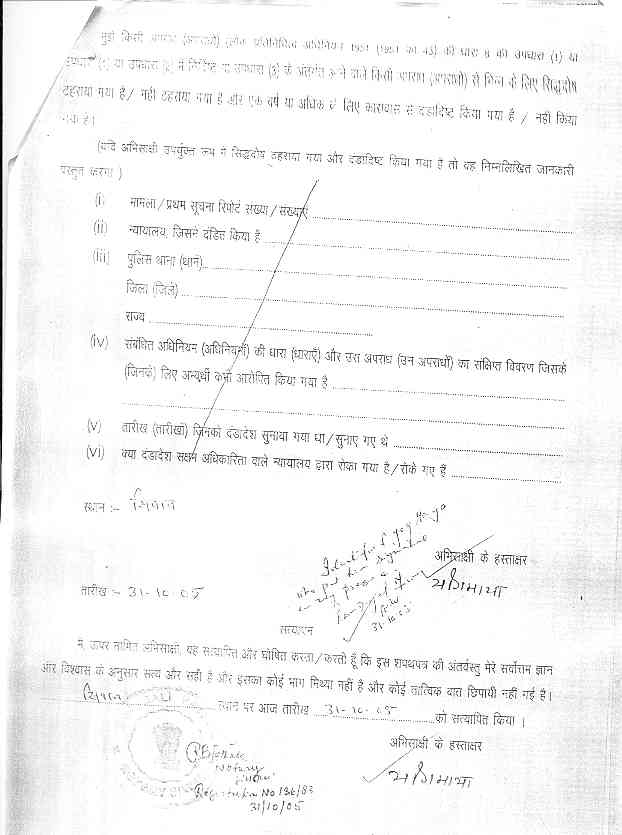 मुझे किसी अपराध (अपराधों) (लोक प्रतिनिधित्व अधिनियम 1951 (1951 का 43) की धारा 8 की उपधारा (1) या
उपधारा (2) में निर्दिष्ट या उपधारा (3) के अंतर्गत आने वाले किसी अपराध (अपराधों) से भिन्न के लिए सिद्धदोष
ठहराया गया है / नहीं ठहराया गया है और एक वर्ष या अधिक के लिए कारावास से दंडादिष्ट किया गया है / नहीं किया
गया है।
(यदि अभिसाक्षी उपर्युक्त रूप में सिद्धदोष ठहराया गया और दंडादिष्ट किया गया है तो वह निम्नलिखित जानकारी
प्रस्तुत करेगा )
(i) मामला/प्रथम सूचना रिपोर्ट संख्या/संख्याएं
(ii) न्यायालय, जिसने दंडित किया है
(iii) पुलिस थाना (थाने)
जिला (जिले)
राज्य
(iv) संबंधित अधिनियम (अधिनियमों) की धारा (धाराएँ) और उस अपराध (उन अपराधों) का संक्षिप्त विवरण जिसके
(जिनके) लिए अभ्यर्थी को आरोपित किया गया है
(v) तारीख (तारीखों) जिनको दंडादेश सुनाया गया था/सुनाए गए थे
(vi) क्या दंडादेश सक्षम अधिकारिता वाले न्यायालय द्वारा रोका गया है/रोके गए हैं
स्थान :- सिवान
Identified
who put her signature
in my presence
31-10-05
अभिसाक्षी के हस्ताक्षर
तारीख :- 31-10-05
सत्यापन
मैं, ऊपर नामित अभिसाक्षी, यह सत्यापित और घोषित करता/करती हूँ कि इस शपथपत्र की अंतर्वस्तु मेरे सर्वोत्तम ज्ञान
और विश्वास के अनुसार सत्य और सही है और इसका कोई भाग मिथ्या नहीं है और कोई तात्विक बात छिपायी नहीं गई है।
सिवान स्थान पर आज तारीख 31-10-05 को सत्यापित किया ।
अभिसाक्षी के हस्ताक्षर
Notary
Registration No 136/83
31/10/05